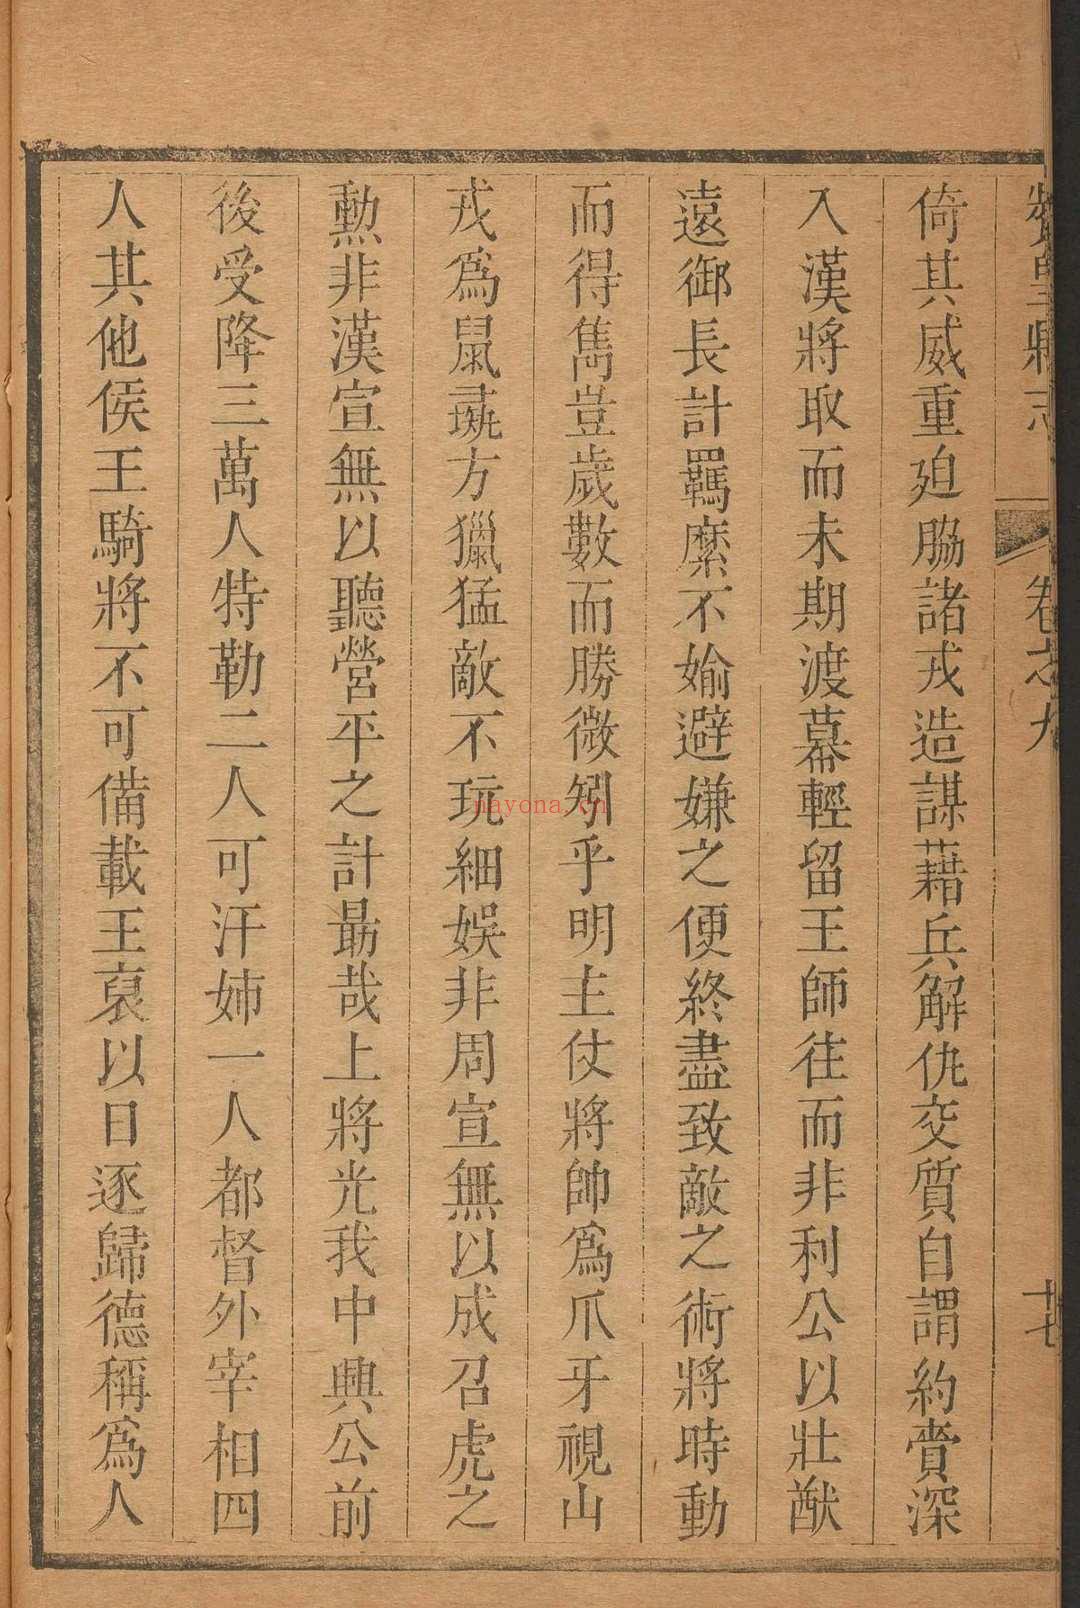 贊皇縣志 卷之九 十七
倚其威重廹脇諸戎造謀藉兵解仇交質自謂約賫深
入漢將取而未期渡幕輕留王師往而非利公以壯猷
遠御長計羈縻不媮避嫌之便終盡致敵之術將時動
而得雋豈歲數而勝微矧乎明主仗將帥爲爪牙視山
戎爲鼠毳方獵猛敵不玩細娛非周宣無以成召虎之
勲非漢宣無以聽營平之計勗哉上將光我中興公前
後受降三萬人特勒二人可汗姊一人都督外宰相四
人其他侯王騎將不可備載王裒以日逐歸德稱爲人
nayona.cn